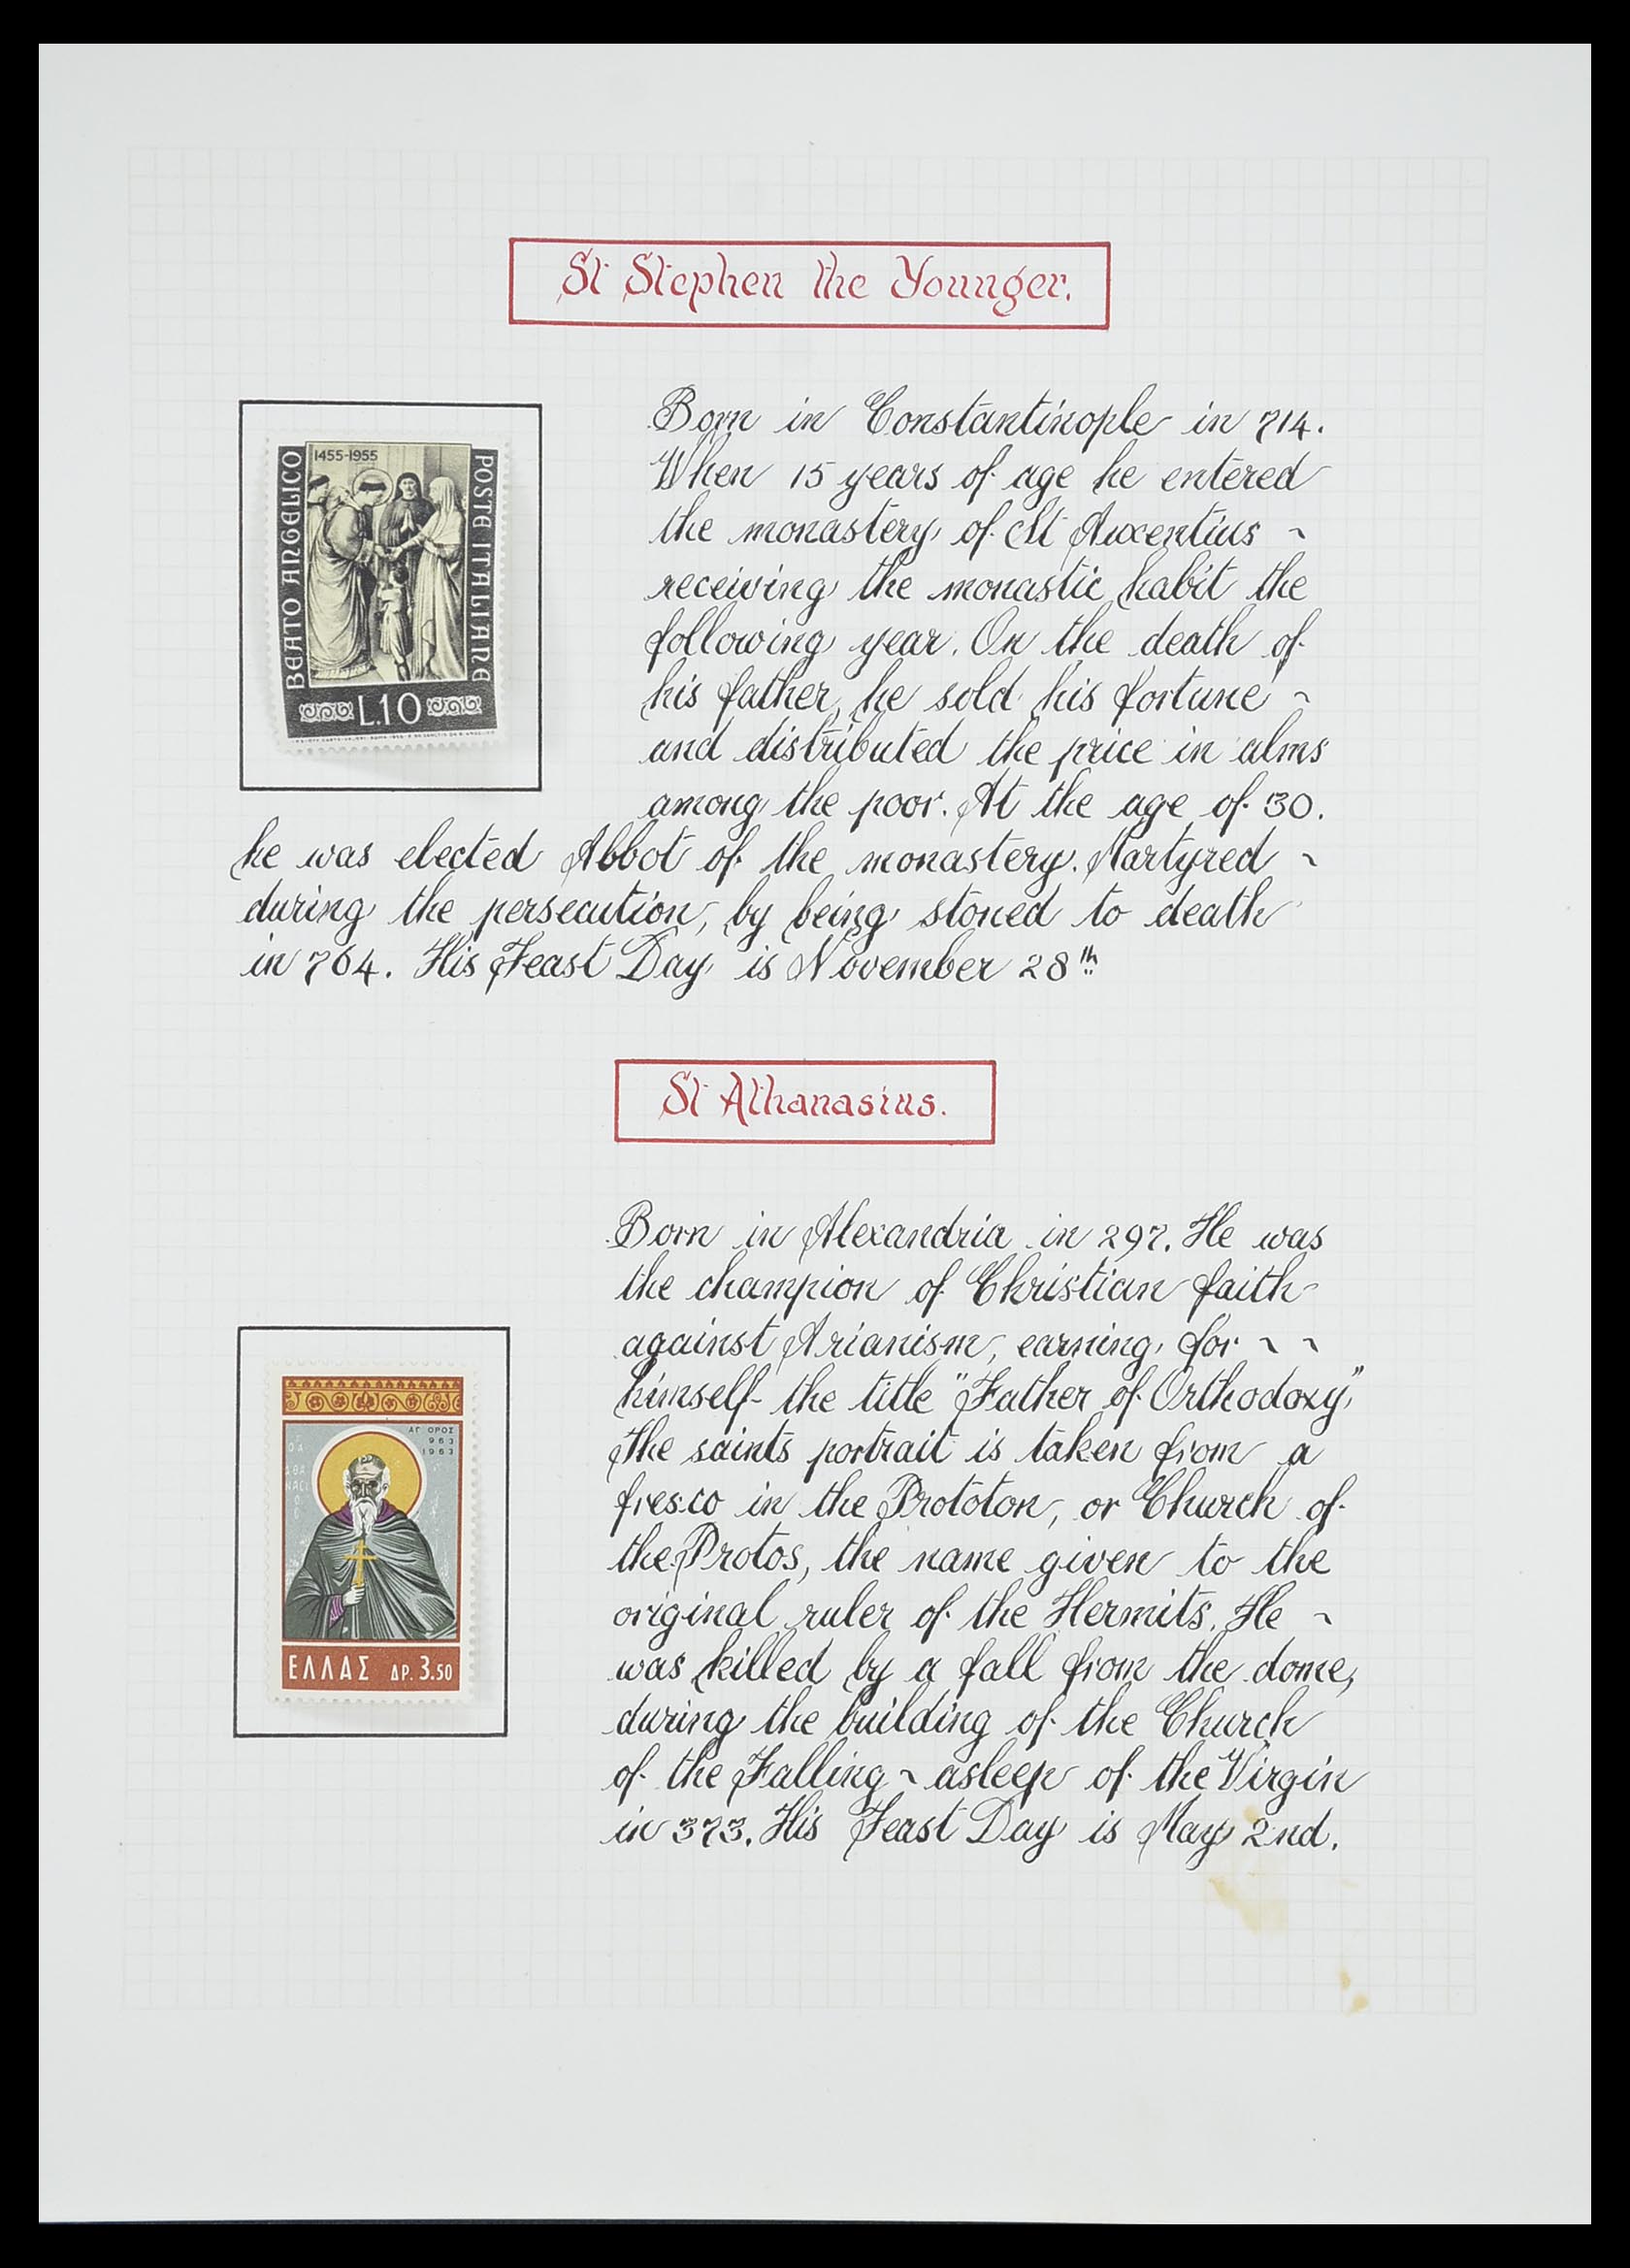 St Stephen the Younger.
1455-1955
BEATO ANGELICO
POSTE ITALIANE
L.10
Born in Constantinople in 714.
When 15 years of age he entered
the monastery of St Auxentius ~
receiving the monastic habit the
following year. On the death of
his father, he sold his fortune ~
and distributed the price in alms
among the poor. At the age of 30.
he was elected Abbot of the monastery. Martyred ~
during the persecution, by being stoned to death
in 764. His Feast Day is November 28th
St Athanasius.
Born in Alexandria in 297. He was
the champion of Christian faith
against Arianism, earning for ~ ~
himself the title "Father of Orthodoxy"
The saints portrait is taken from a
fresco in the Prototon, or Church of
the Protos, the name given to the
original ruler of the Hermits. He ~
was killed by a fall from the dome,
during the building of the Church
of the Falling ~ asleep of the Virgin
in 373. His Feast Day is May 2nd.
ΑΓ ΟΡΟΣ
963
1963
ΕΛΛΑΣ ΔΡ. 3.50